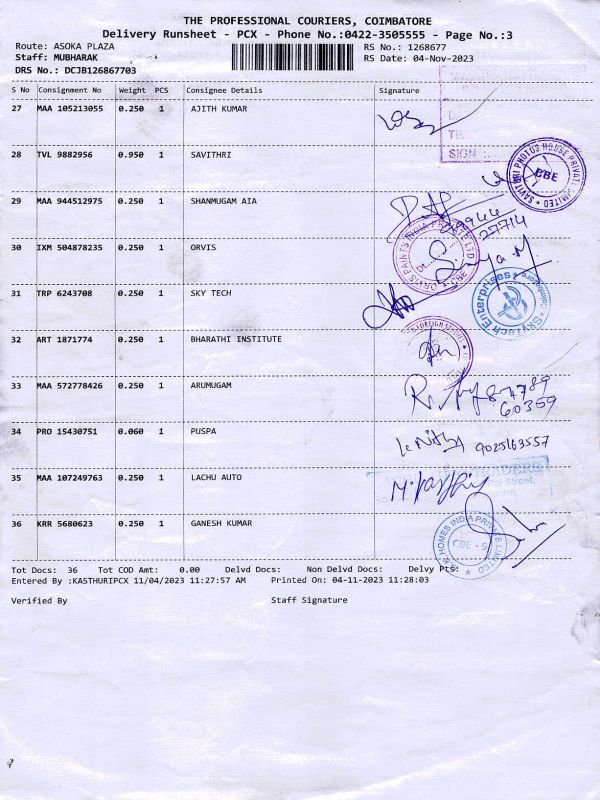 THE PROFESSIONAL COURIERS, COIMBATORE
Delivery Runsheet - PCX - Phone No.:0422-3505555 - Page No.:3
Route: ASOKA PLAZA RS No.: 1268677
Staff: MUBHARAK RS Date: 04-Nov-2023
DRS No.: DCJB126867703
S No Consignment No Weight PCS Consignee Details Signature
27 MAA 105213055 0.250 1 AJITH KUMAR
SIGN
28 TVL 9882956 0.950 1 SAVITHRI
SAVITHRI PHOTOS HOUSE PRIVATE LIMITED
CBE
29 MAA 944512975 0.250 1 SHANMUGAM AIA
27714
30 IXM 504878235 0.250 1 ORVIS
ORVIS PAINTS INDIA PRIVATE LTD
CBE
31 TRP 6243708 0.250 1 SKY TECH
Skytech Enterprises
Coimbatore
32 ART 1871774 0.250 1 BHARATHI INSTITUTE
33 MAA 572778426 0.250 1 ARUMUGAM
60359
34 PRO 15430751 0.060 1 PUSPA
9025163557
35 MAA 107249763 0.250 1 LACHU AUTO
Street,
36 KRR 5680623 0.250 1 GANESH KUMAR
HOMES INDIA PRIVATE LIMITED
CBE - 9
Tot Docs: 36 Tot COD Amt: 0.00 Delvd Docs: Non Delvd Docs: Delvy Pts:
Entered By :KASTHURIPCX 11/04/2023 11:27:57 AM Printed On: 04-11-2023 11:28:03
Verified By Staff Signature